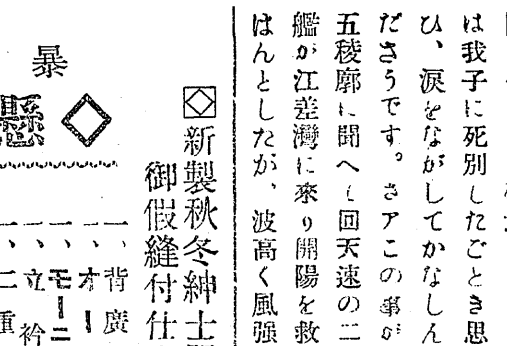 は我子に死別したごとき思
ひ、涙をながしてかなしん
ださうです。さアこの事が
五稜廓に聞へし回天速の二
艦が江差灣に來り開陽を救
はんとしたが、波高く風强
新製秋冬紳士
御假縫付仕
暴
懸
一、背廣
一、オー
一、モーニ
一、立衿
一、二重